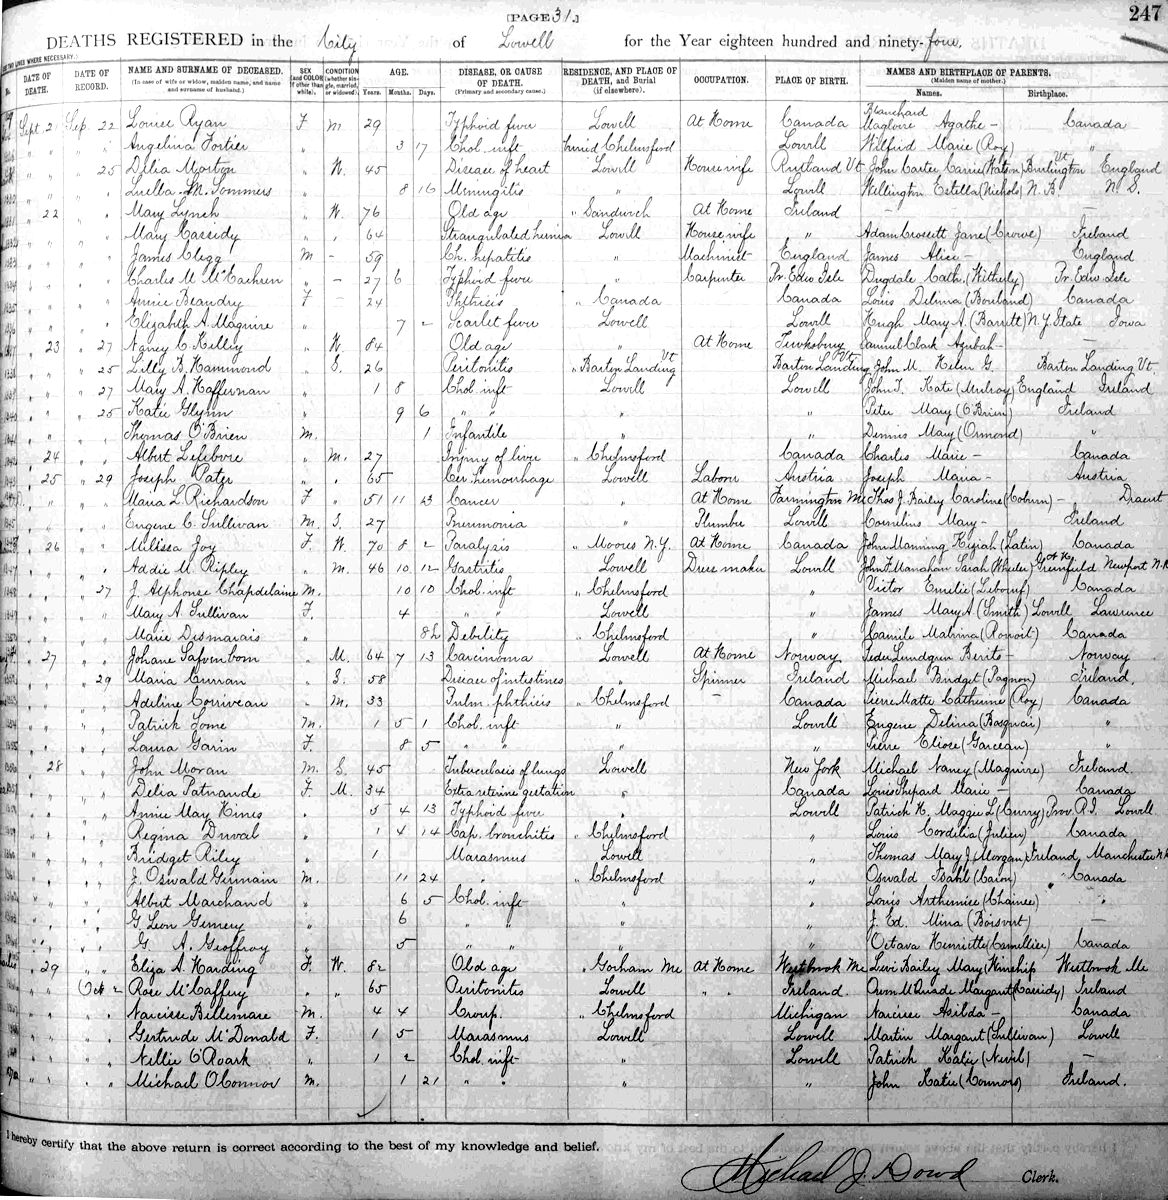 [PAGE 31.]
247
DEATHS REGISTERED in the City of Lowell for the Year eighteen hundred and ninety-four.
No. DATE OF DEATH. DATE OF RECORD. NAME AND SURNAME OF DECEASED. (In case of wife or widow, maiden name, and name and surname of husband.) SEX (and COLOR if other than white). CONDITION (whether single, married, or widowed). AGE. Years. Months. Days. DISEASE, OR CAUSE OF DEATH. (Primary and secondary cause.) RESIDENCE, and PLACE OF DEATH, and Burial (if elsewhere). OCCUPATION. PLACE OF BIRTH. NAMES AND BIRTHPLACE OF PARENTS. (Maiden name of mother.) Names. Birthplace.
Sept. 21 Sep. 22 Louise Ryan F M 29 Typhoid fever Lowell At Home Canada Blanchard Magloire Agathe - Canada
" " " " Angelina Fortier " 3 17 Chol. inft buried Chelmsford Lowell Wilfrid Marie (Roy) "
" " " 25 Delia Morton " W. 45 Disease of heart Lowell Housewife Rutland Vt John Carter Carrie (Watson) Burlington Vt England
" " " " Luella M. Sommers " 8 16 Meningitis " Lowell Wellington Estella (Nichols) N. B N. S.
" 22 " " Mary Lynch " W. 76 Old age " Sandwich At Home Ireland - -
" " " " Mary Cassidy " " 64 Strangulated hernia Lowell Housewife " Adam Crossett Jane (Crowe) Ireland
" " " " James Clegg M - 59 Ch. hepatitis " Machinist England James Alice - England
" " " " Charles M. McEachren " - 27 6 Typhoid fever " Carpenter Pr. Edw Isle Dugdale Cath. (Witherly) Pr Edw Isle
" " " " Annie Beaudry F - 24 Phthisis " Canada Canada Louis Delima (Bouland) Canada
" " " " Elizabeth A. Maguire " 7 2 Scarlet fever Lowell Lowell Hugh Mary A. (Barrett) N. Y. State Iowa
" 23 " 27 Nancy C. Kelley " W. 84 Old age " At Home Tewksbury Samuel Clark Azubah -
" " " 25 Lilly B. Hammond " S. 26 Peritonitis " Barton Landing Vt Barton Landing Vt John M. Helen G. Barton Landing Vt.
" " " 27 Mary A. Haffernan " 1 8 Chol. inft Lowell Lowell John T. Kate (Mulroy) England Ireland
" " " 25 Katie Glynn " 9 6 " " " " Peter Mary (O'Brien) Ireland
" " " " Thomas O'Brien M. 1 Infantile " " Dennis Mary (Ormond) "
" 24 " " Albert Lefebvre " M. 27 Injury of liver " Chelmsford Canada Charles Marie - Canada
" 25 " 29 Joseph Pater " " 65 Cer. hemorrhage Lowell Labour Austria Joseph Maria - Austria
" " " " Maria L. Richardson F " 51 11 23 Cancer " At Home Farmington Me Thos J. Bailey Caroline (Coburn) - Dracut
" " " " Eugene C. Sullivan M. S. 27 Pneumonia " Plumber Lowell Cornelius Mary - Ireland
" 26 " " Melissa Joy F. W. 70 8 2 Paralysis " Moores N.Y. At Home Canada John Manning Kyiah (Latin) Canada
" " " " Addie M. Ripley " M. 46 10 12 Gastritis Lowell Dress maker Lowell John F. Manahan Sarah (Wheeler) Greenfield Newport N.H.
" " " 27 J. Alphonse Chapdelaine M. 10 10 Chol. inft " Chelmsford " Victor Emelie (Leboeuf) Canada
" " " " Mary A. Sullivan F. 4 " " Lowell " James Mary A (Smith) Lowell Lawrence
" " " " Marie Desmarais " 8h Debility " Chelmsford " Camile Malvina (Benoit) Canada
" 27 " " Johane Safvenbom " M. 64 7 13 Carcinoma Lowell At Home Norway Peder Lundgren Berits - Norway
" " " 29 Maria Curran " S. 58 Disease of intestines " Spinner Ireland Michael Bridget (Fagnon) Ireland.
" " " " Adeline Corriveau " M. 33 Pulm. phthisis " Chelmsford - Canada Pierre Matte Catherine (Roy) Canada
" " " " Patrick Lome M. 1 5 1 Chol. inft " " Lowell Eugene Delina (Bosquair) "
" " " " Laura Garin F. 8 5 " " " " Pierre Eliose (Garceau) "
" 28 " " John Moran M. S. 45 Tuberculosis of lungs Lowell New York Michael Nancy (Maguire) Ireland.
" " " " Delia Patnaude F M. 34 Extra uterine gestation " Canada Louis Shepard Marie - Canada
" " " " Annie May Hines " 5 4 13 Typhoid fever " Lowell Patrick H. Maggie L (Curry) Prov. R.I. Lowell
" " " " Regina Duval " 1 4 14 Cap. bronchitis " Chelmsford " Louis Cordelia (Julien) Canada
" " " " Bridget Riley " 1 Marasmus Lowell " Thomas Mary J. (Morgan) Ireland Manchester N.H
" " " " J. Oswald Germain M. 11 24 " " Chelmsford " Oswald Isab'l (Caron) " Canada
" " " " Albert Marchand " 6 5 Chol. inft " " Louis Arthemise (Chainee) "
" " " " G. Leon Gemery " 6 " " " " J. Ed. Mina (Boisvert) -
" " " " G. A. Geoffroy " 5 " " " " Octava Henriette (Camellier) Canada
" 29 " " Eliza A. Harding F. W. 82 Old age " Gorham Me At Home Westbrook Me Levi Bailey Mary (Winship Westbrook Me
" " Oct 2 Rose McCaffery " " 65 Peritonites Lowell " " Ireland. Owen McQuade Margaret (Cassidy) Ireland
" " " " Narcisse Bellemare M. 4 4 Croup. " Chelmsford Michigan Narcisse Asilda - Canada
" " " " Gertrude McDonald F. 1 5 Marasmus Lowell Lowell Martin Margaret (Sullivan) Lowell
" " " " Nillie O'Roark " 1 2 Chol. inft " Lowell Patrick Katie (Nevil) -
" " " " Michael O'Connor M. 1 21 " " " " John Katie (Connors) Ireland.
I hereby certify that the above return is correct according to the best of my knowledge and belief.
Michael J. Dowd Clerk.